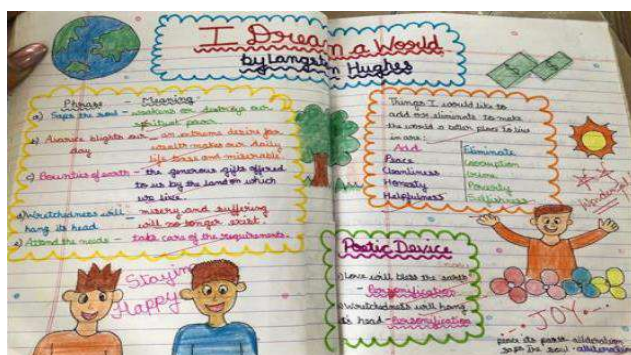 I Dream a World
by Langston Hughes
Phrase - Meaning
a) Saps the soul - weakens or destroys our
spiritual power
b) Avarice blights our - an extreme desire for
day wealth makes our daily
life toss and miserable.
c) Bounties of earth - the generous gifts offered
to us by the land on which
we live.
d) Wretchedness will - misery and suffering
hang its head will no longer exist.
e) Attend the needs - take care of the requirements.
Staying
Happy
Things I would like to
add or eliminate to make
the world a better place to live
in are:
Add Eliminate
Peace Corruption
Cleanliness Crime
Honesty Poverty
Helpfulness Selfishness
Wonderful
Poetic Device
a) Love will bless the earth
- Personification
b) Wretchedness will hang
its head - Personification
JOY
peace its paths - alliteration
saps the soul - alliteration